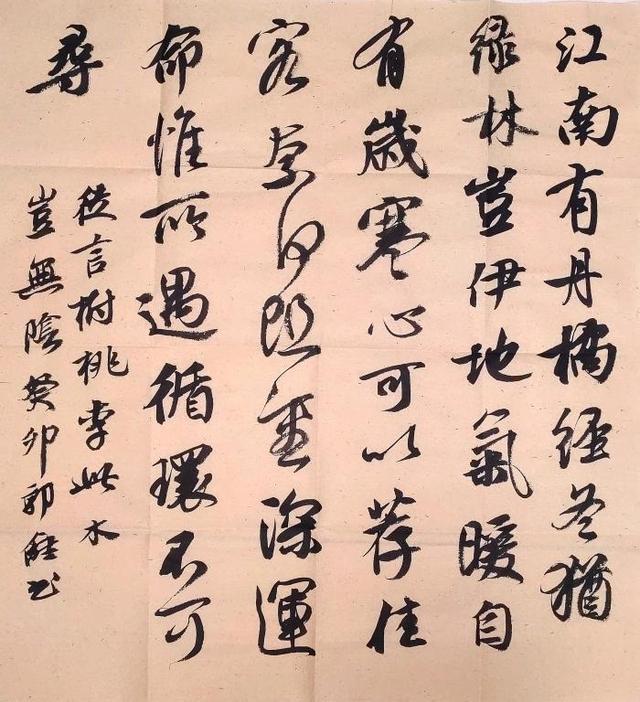 江南有丹橘經冬猶
緑林豈伊地氣暖自
有歲寒心可以荐佳
客奈何阻重深運
命惟所遇循環不可
尋
徒言树桃李此木
豈無陰癸卯郭书